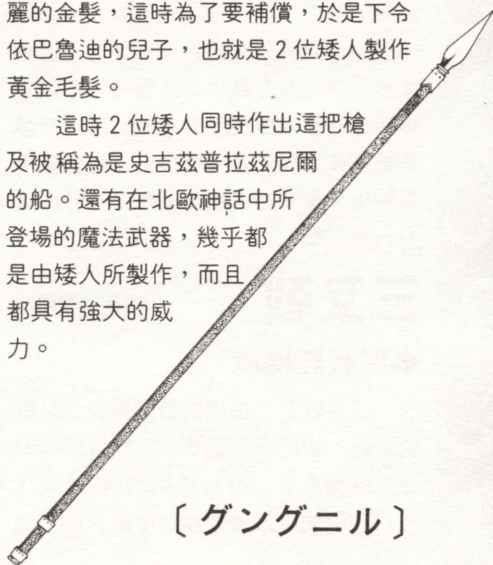 麗的金髮，這時為了要補償，於是下令
依巴魯迪的兒子，也就是2位矮人製作
黃金毛髮。
這時2位矮人同時作出這把槍
及被稱為是史吉茲普拉茲尼爾
的船。還有在北歐神話中所
登場的魔法武器，幾乎都
是由矮人所製作，而且
都具有強大的威
力。
〔グングニル〕